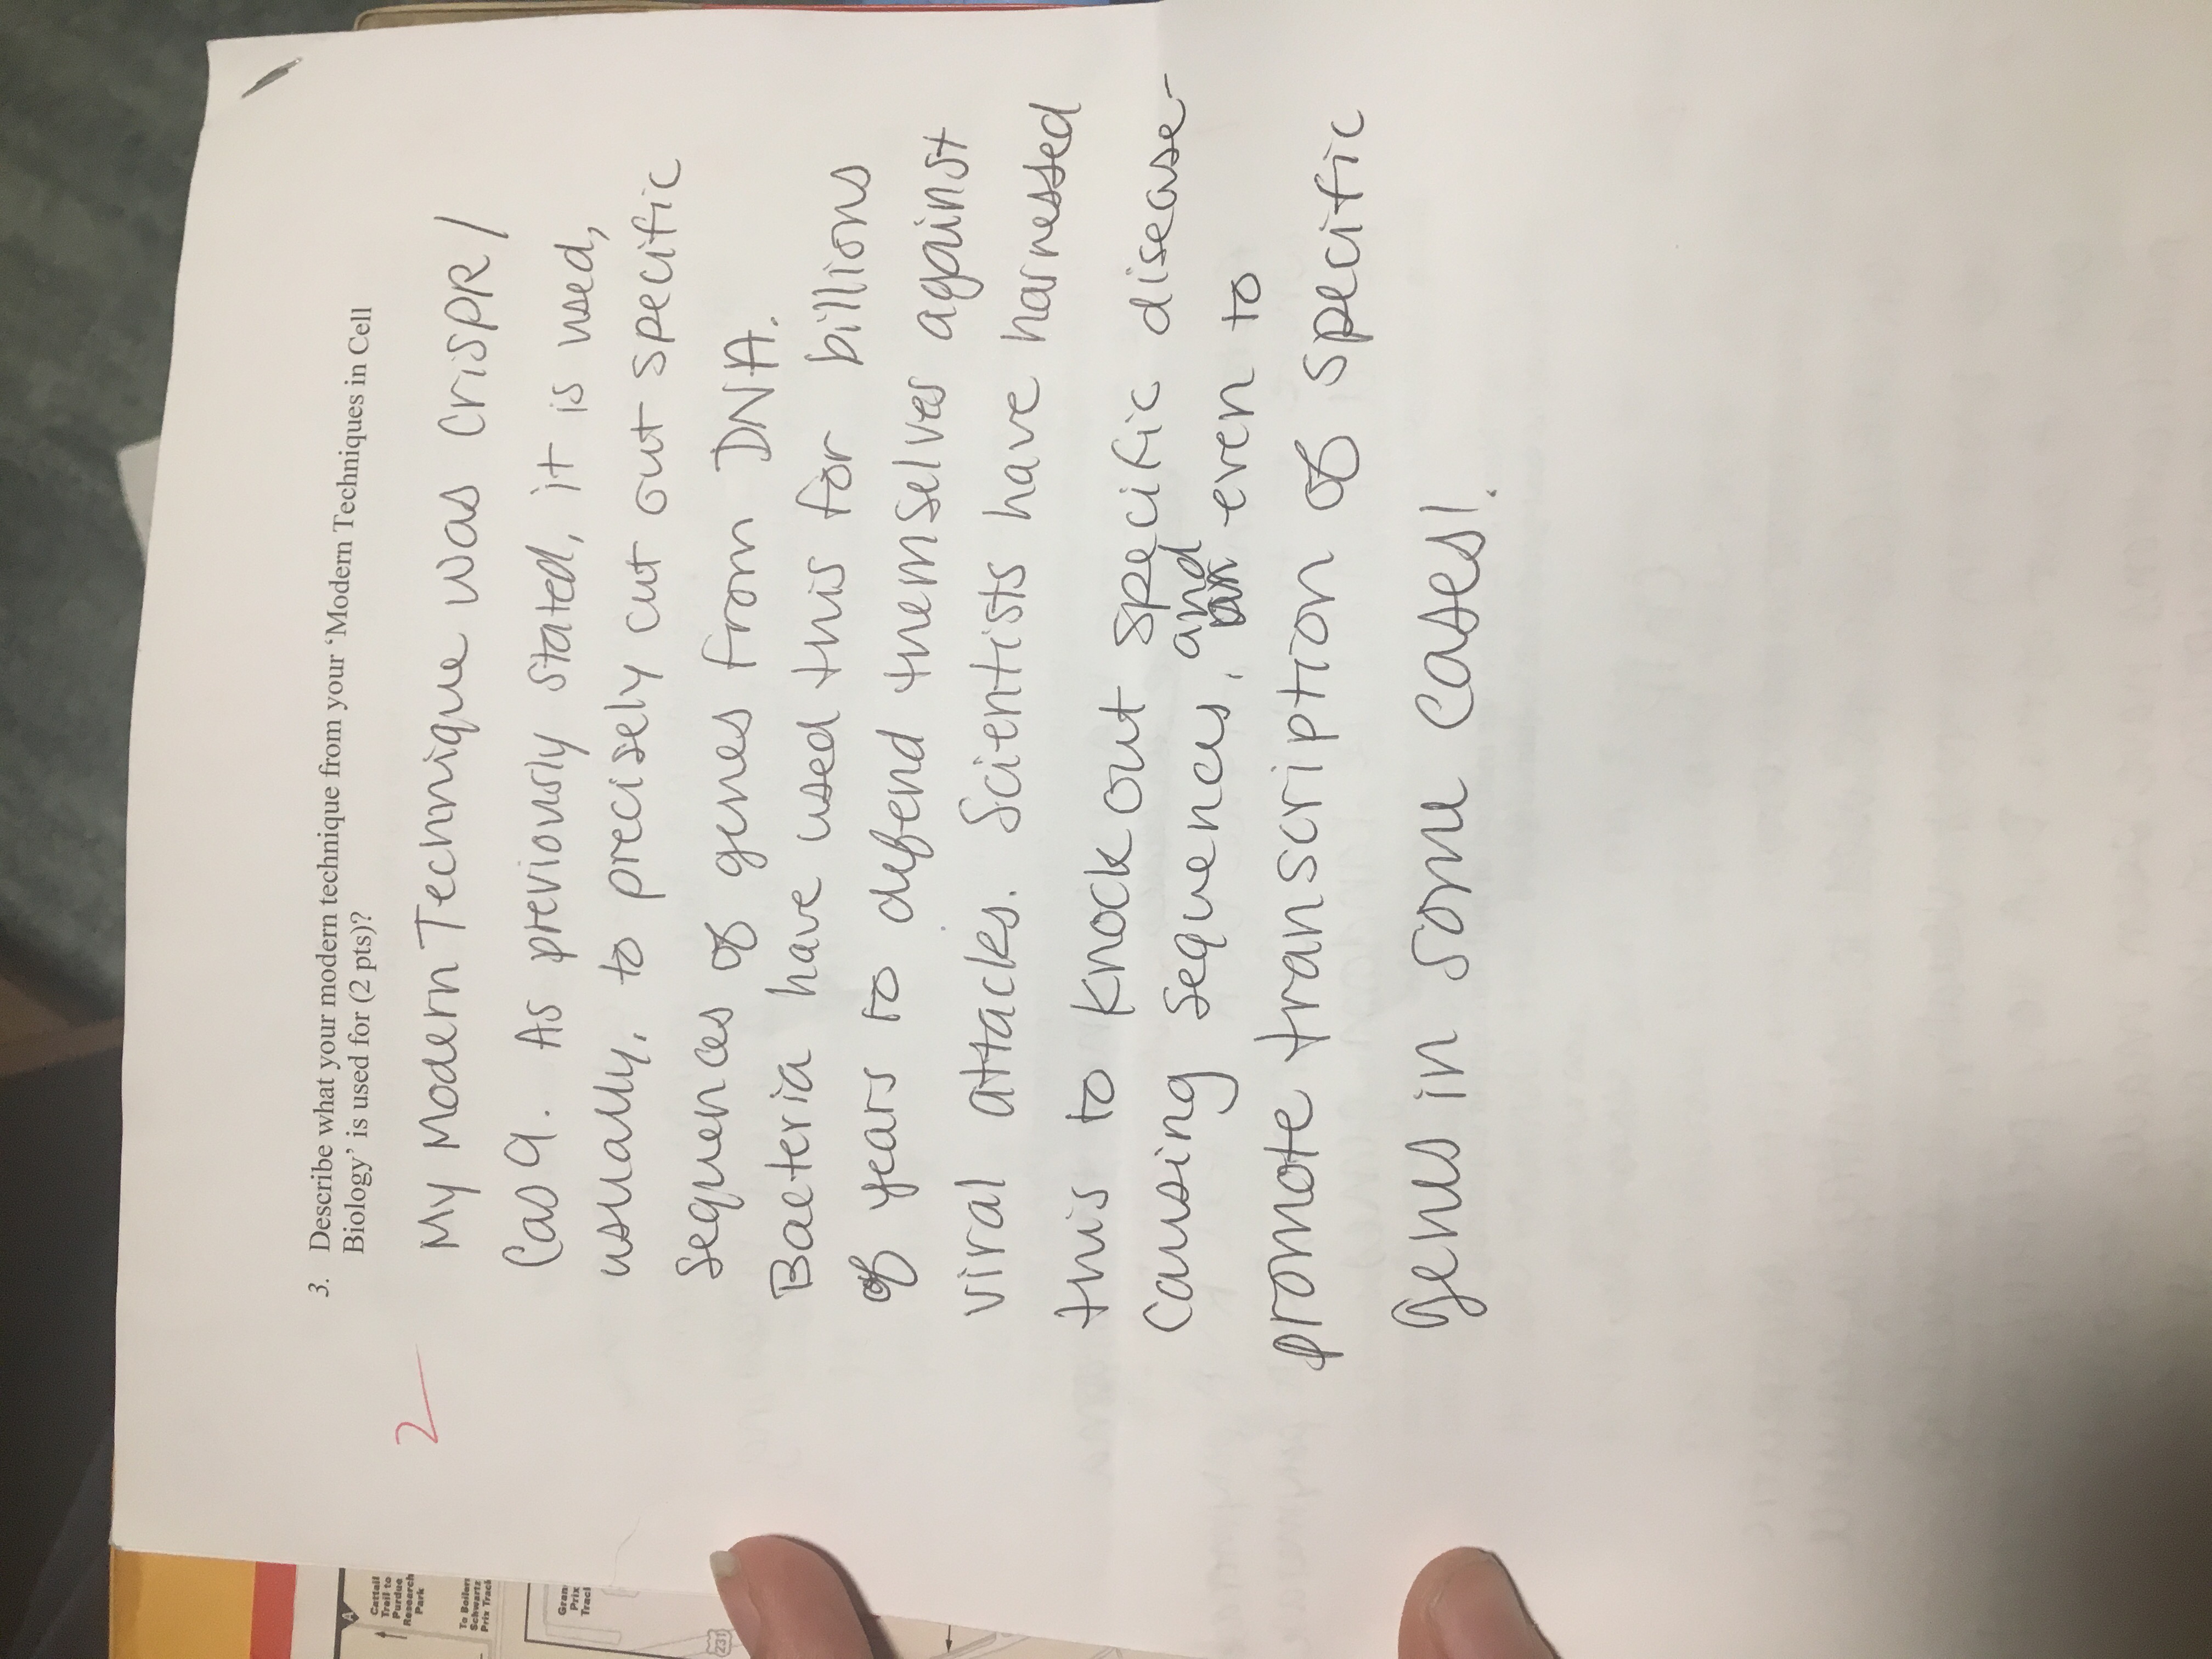 A
Cattail
Trail to
Purdue
Research
Park
To Boilerm
Schwartz
Prix Track
Gran
Prix
Track
231
3. Describe what your modern technique from your ‘Modern Techniques in Cell
Biology’ is used for (2 pts)?
2
My Modern Technique was CrisPR/
Cas9. As previously stated, it is used,
usually, to precisely cut out specific
sequences of genes from DNA.
Bacteria have used this for billions
of years to defend themselves against
viral attacks. Scientists have harnessed
this to knock out specific disease-
causing sequences, and even to
promote transcription of specific
genes in some cases!